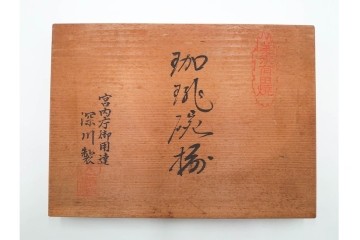 珈琲碗揃
宮内庁御用達
深川製